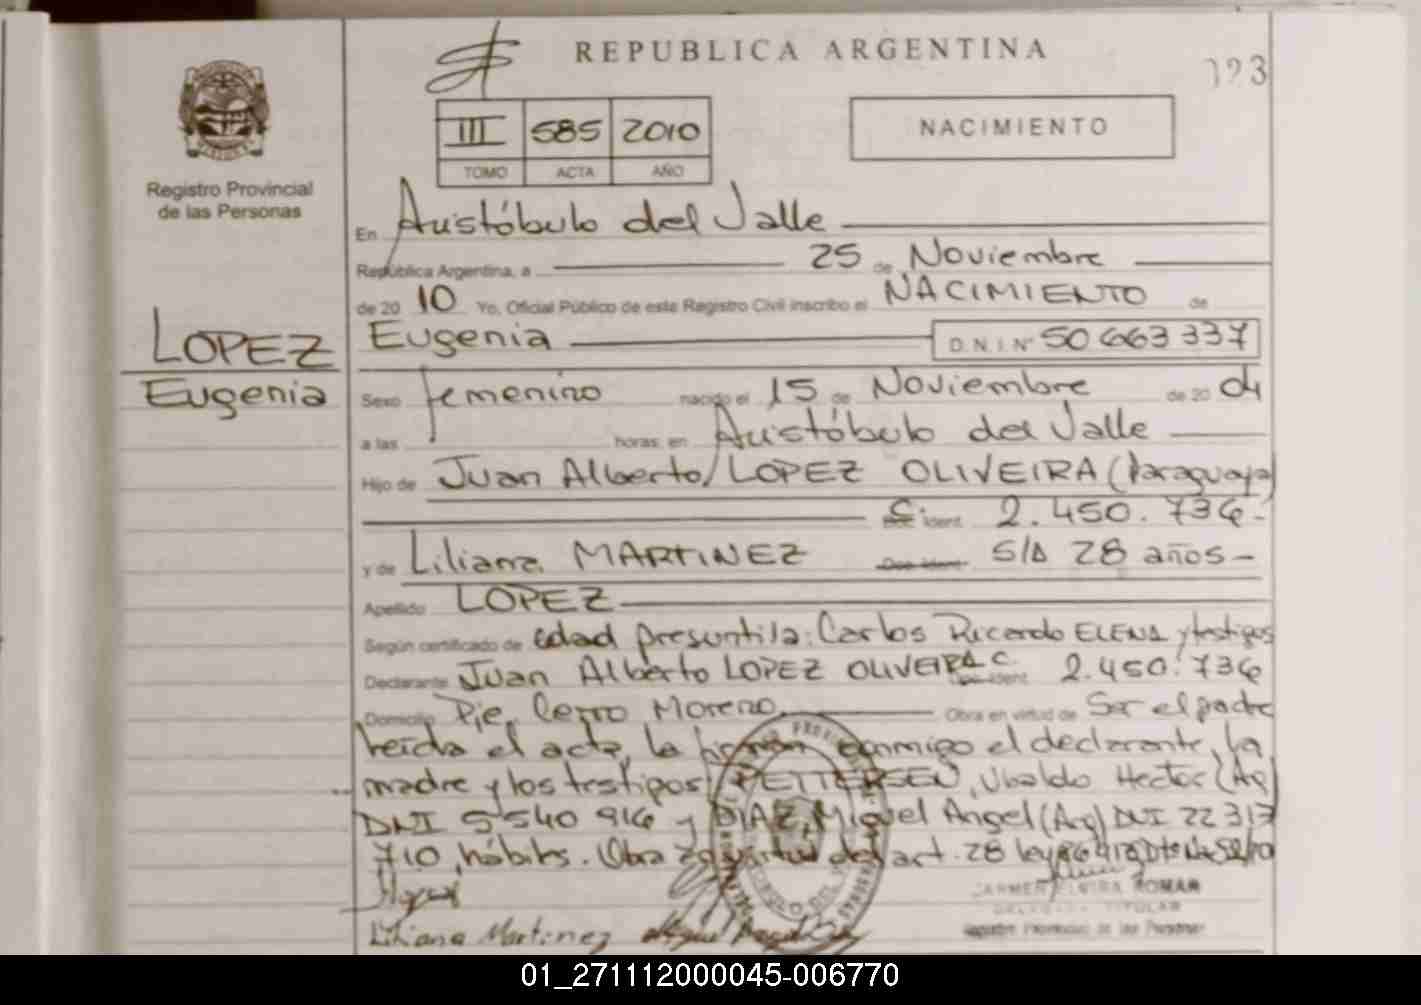 REPUBLICA ARGENTINA
III 585 2010
TOMO ACTA AÑO
NACIMIENTO
Registro Provincial
de las Personas
En Aristóbulo del Valle
República Argentina, a 25 de Noviembre
de 20 10 Yo, Oficial Público de este Registro Civil inscribo el NACIMIENTO de
LOPEZ
Eugenia
Eugenia D.N.I. Nº 50 663 337
Sexo femenino nacido el 15 de Noviembre de 20 04
a las horas: en Aristóbulo del Valle
Hijo de Juan Alberto LOPEZ OLIVEIRA (Paraguaya)
C. Ident. 2.450.736.-
y de Liliana MARTINEZ Doc. Ident. S/D 28 años -
Apellido LOPEZ
Según certificado de edad presuntiva: Carlos Ricardo ELENA y testigos
Declarante Juan Alberto LOPEZ OLIVEIRA C. Ident. 2.450.736
Domicilio Pje. Cerro Moreno Obra en virtud de Ser el padre
leída el acta, la firman conmigo el declarante, la
madre y los testigos PETTERSEN, Ubaldo Hector (Arg)
DNI 5 540 916 y DIAZ, Miguel Angel (Arg) DNI 22 313
710, hábiles. Obra en virtud del art. 28 ley 26413
CARMEN ELVIRA ROMAN
DELEGADA TITULAR
Registro Provincial de las Personas
Liliana Martinez
01_271112000045-006770